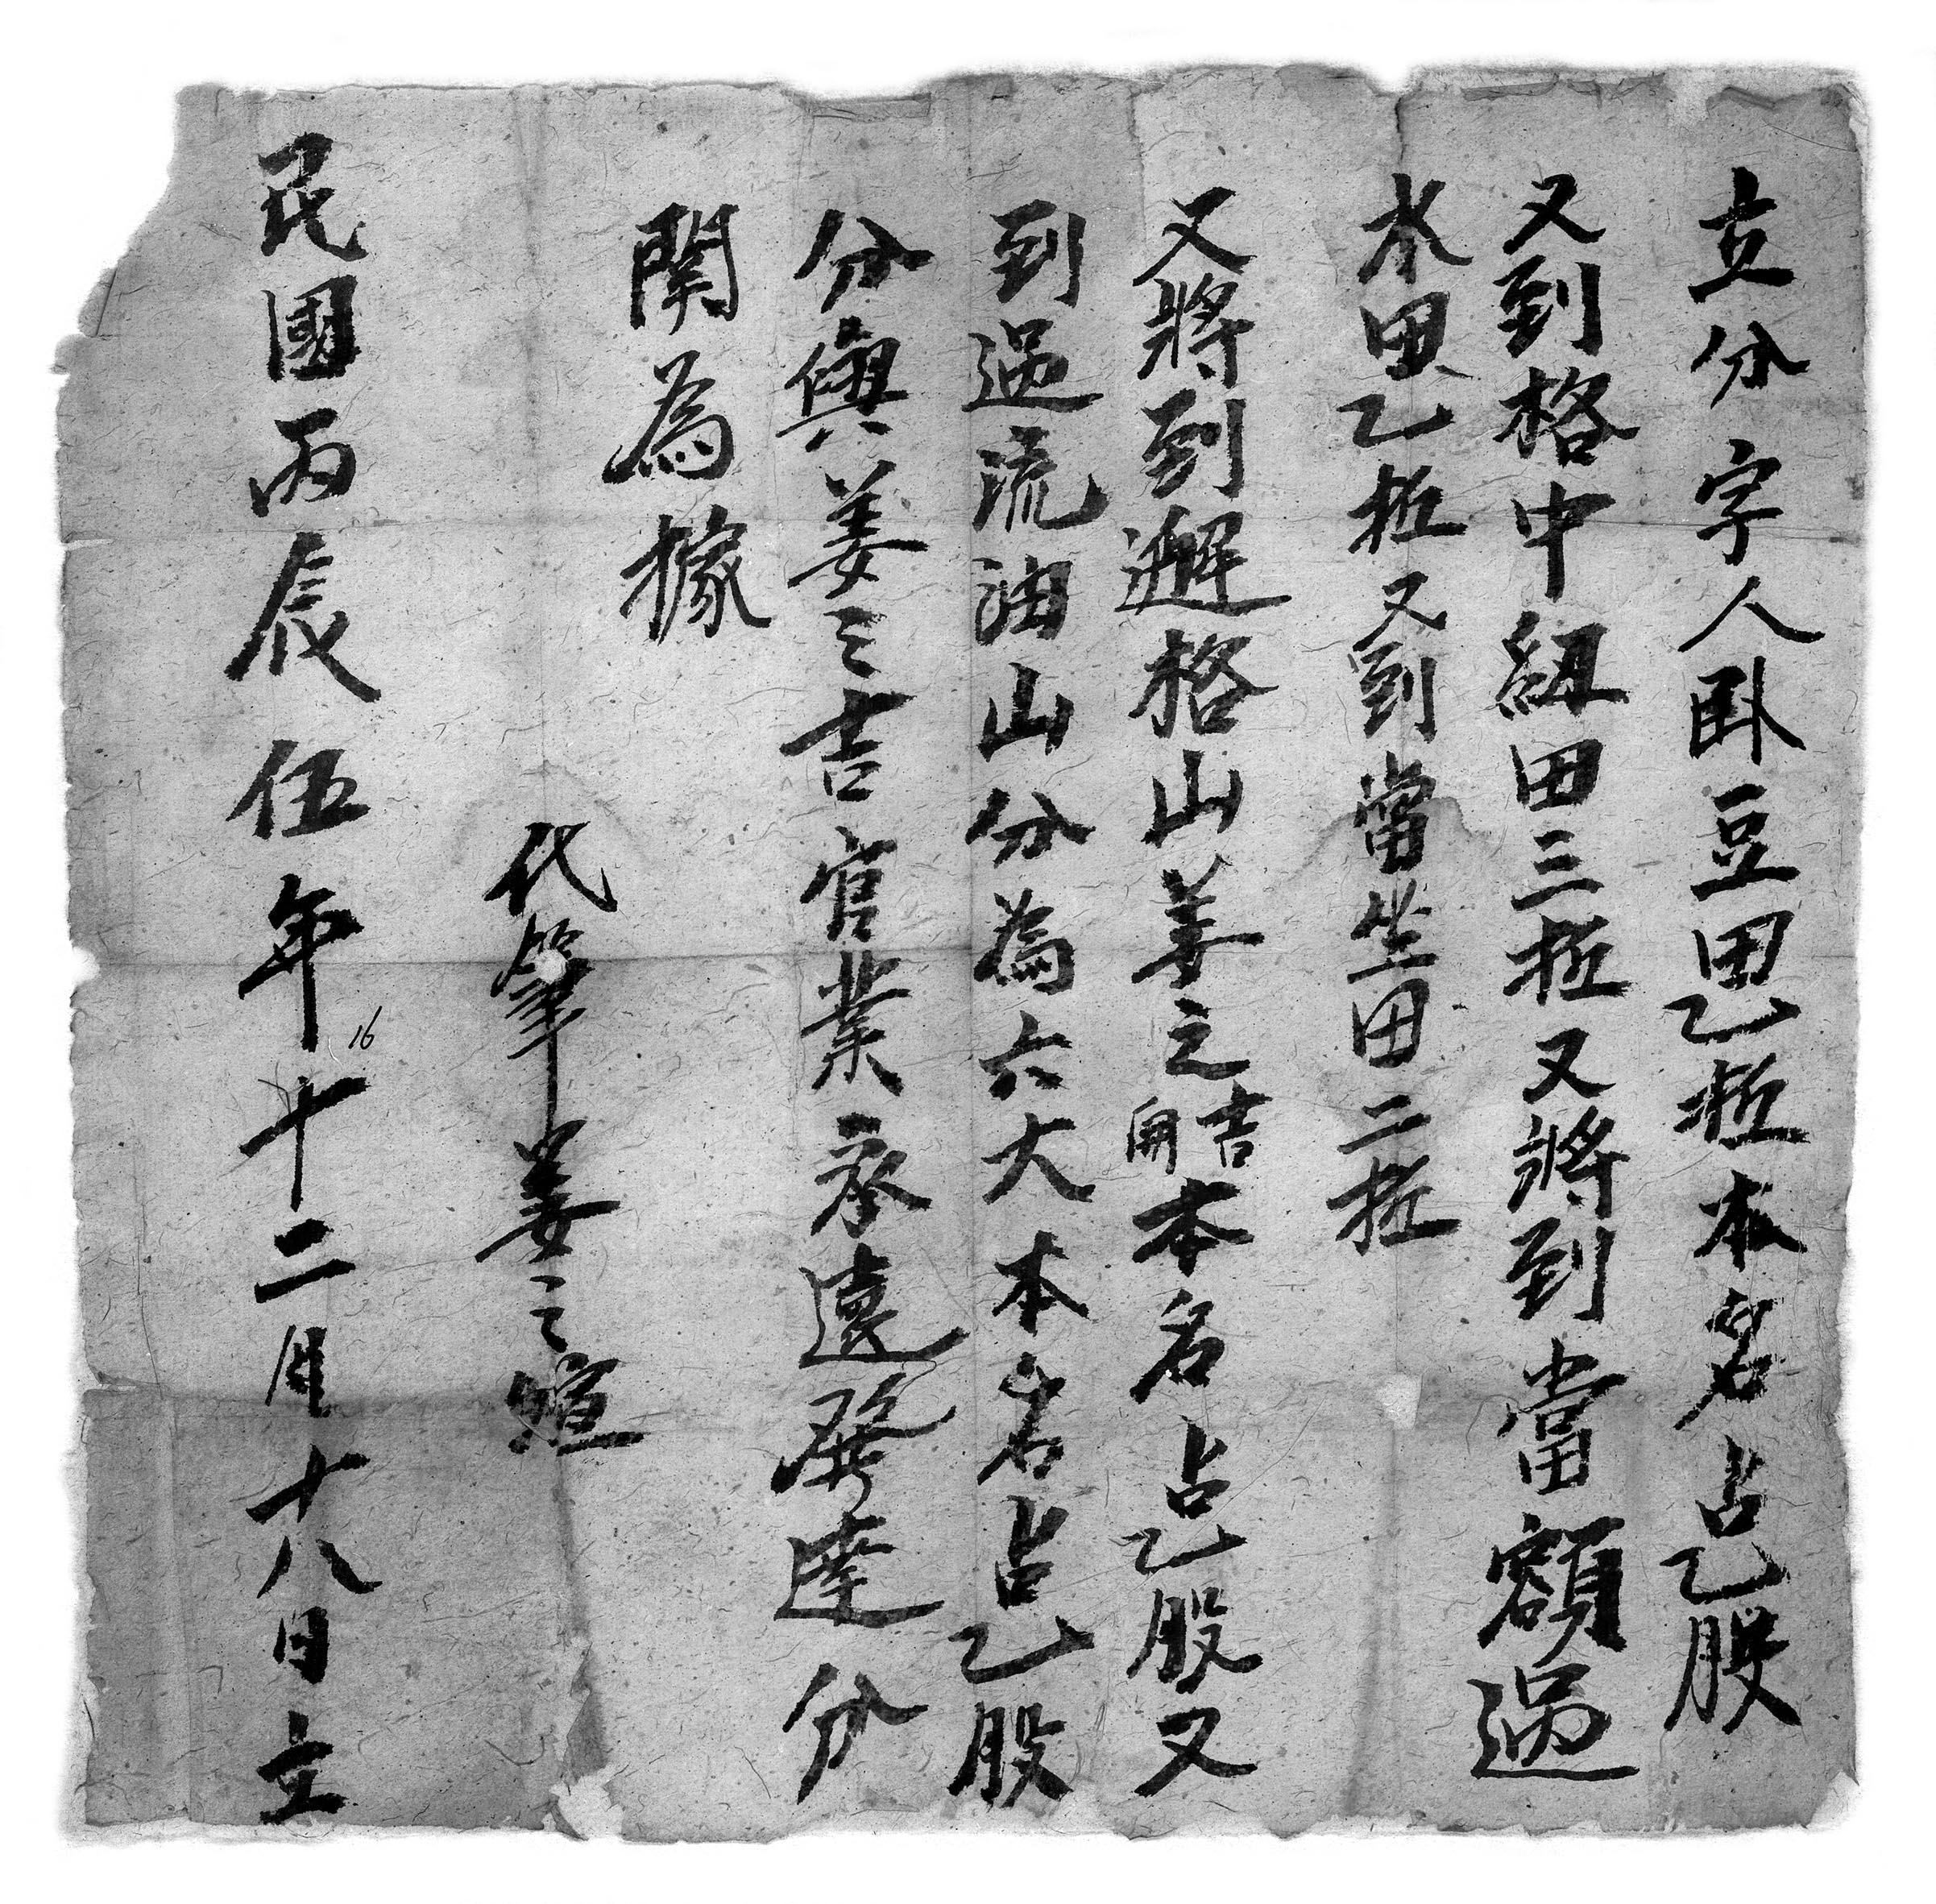 立分字人卧豆田乙坵本名占乙股
又到格中紐田三坵又將到當額過
水田乙坵又到當坐田二坵
又將到邂格山姜之吉開本名占乙股又
到過流油山分為六大本名占乙股
分與姜之吉官業承遠發達分
関為據
代筆姜之煊
民國丙辰伍年十二月十八日立
16